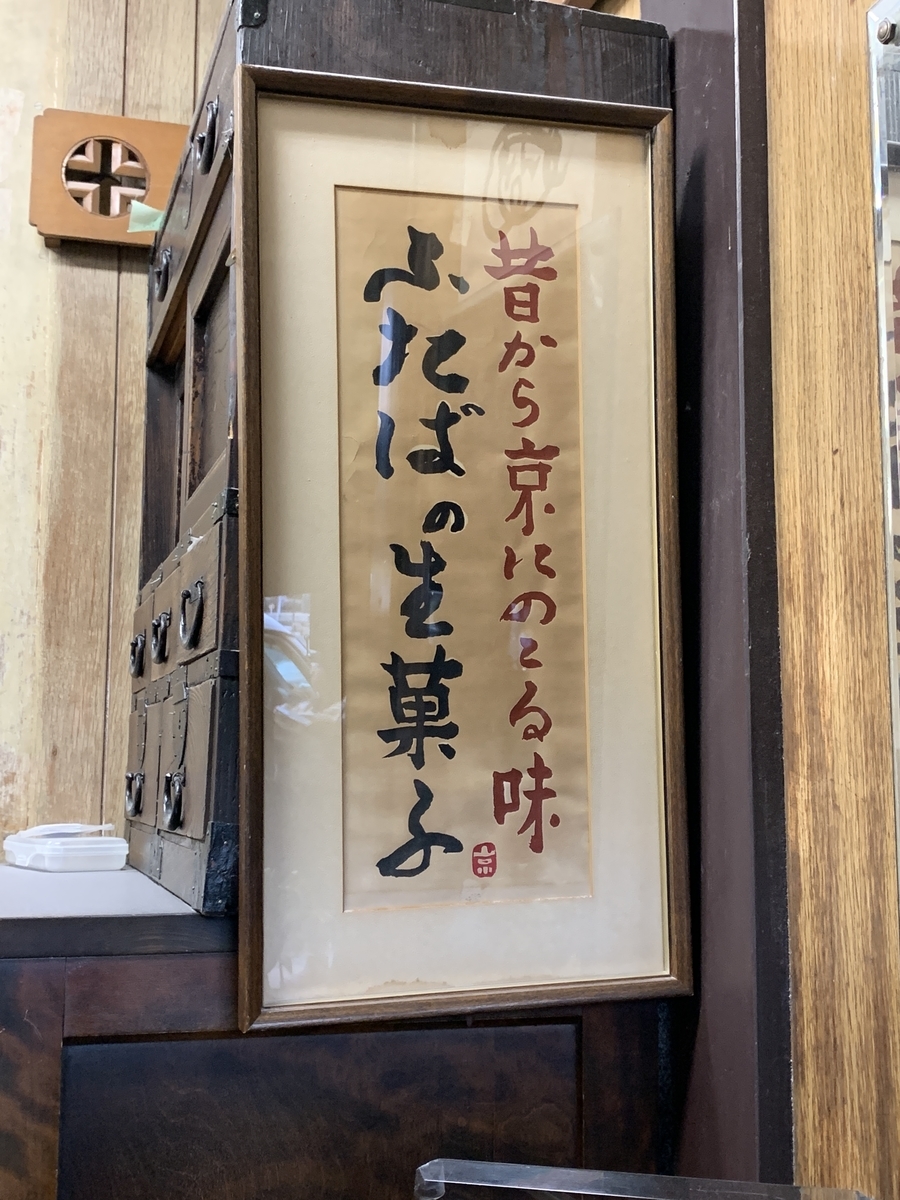 昔から京にのこる味
ふたばの生菓子
京